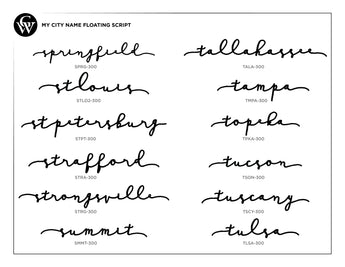 CW
MY CITY NAME FLOATING SCRIPT
springfield
SPRG-300
stlouis
STLO2-300
stpetersburg
STPT-300
strafford
STRA-300
strongsville
STRG-300
summit
SMMT-300
tallahassee
TALA-300
tampa
TMPA-300
topeka
TPKA-300
tucson
TSON-300
tuscany
TSCY-300
tulsa
TLSA-300